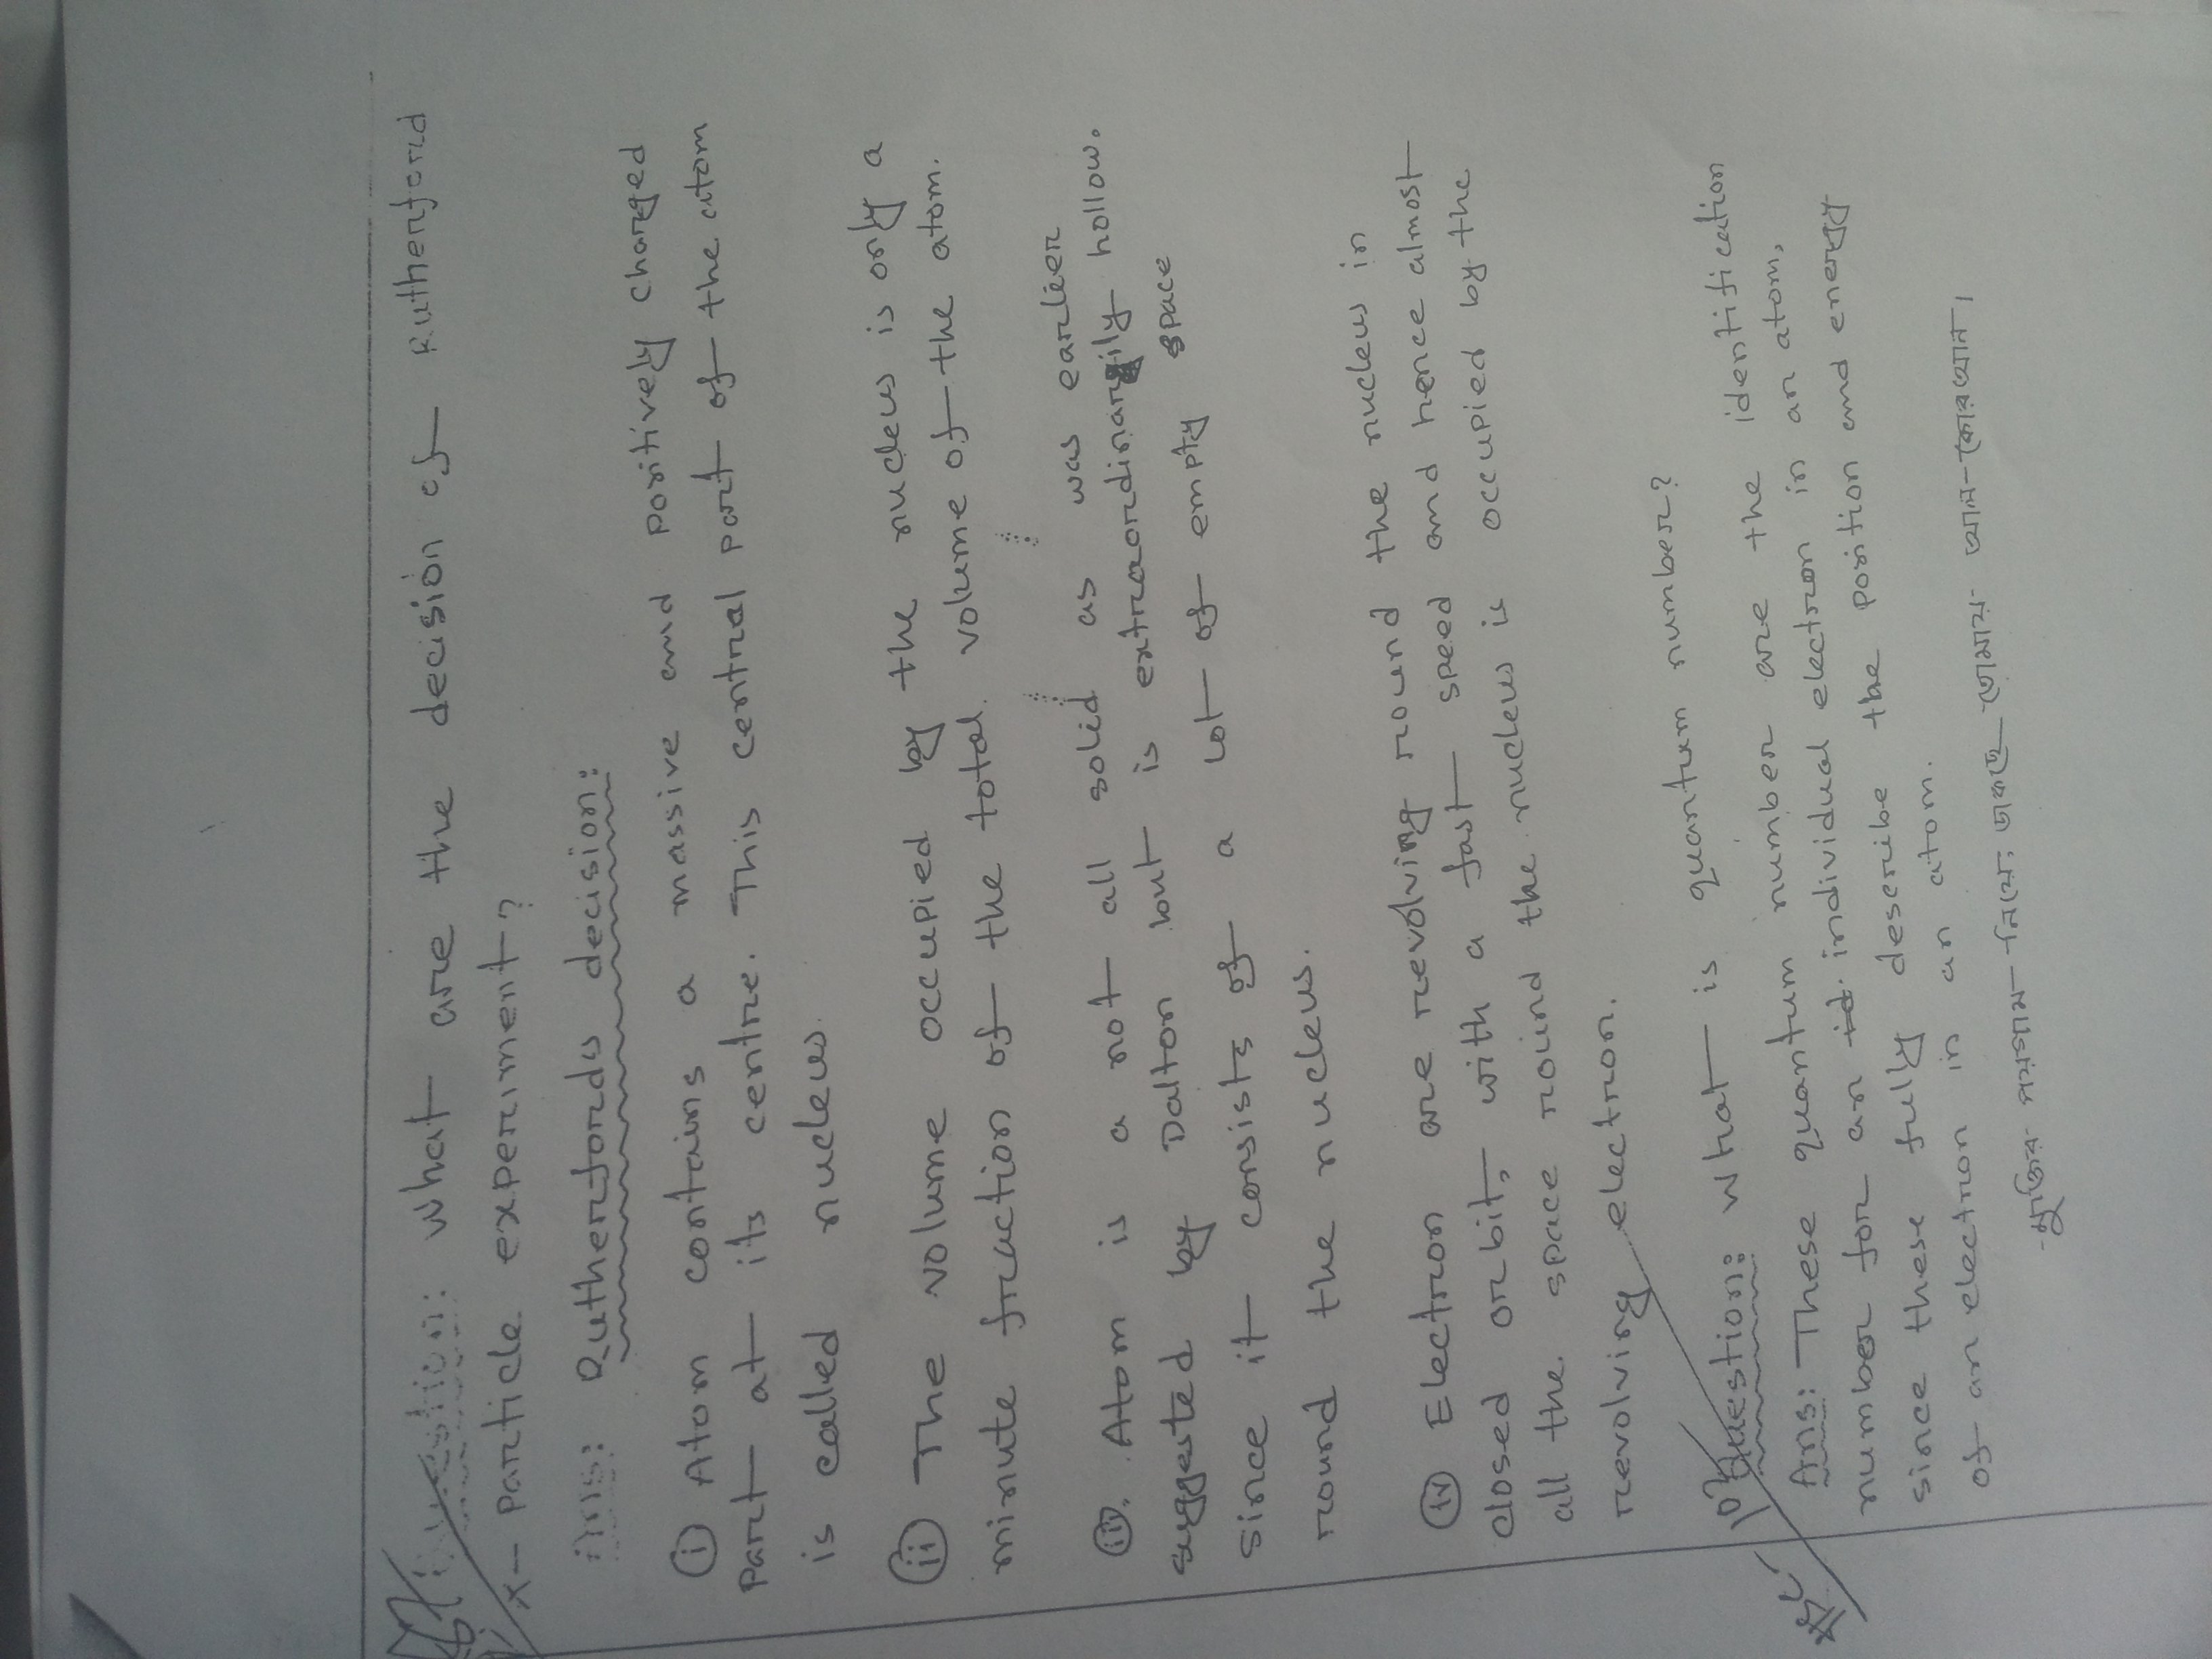 Question: What are the decision of Rutherford
α- Particle experiment?
Ans: Rutherfords decision:
(i) Atom contains a massive and positively charged
part at its centre. This central part of the atom
is called nucleus.
(ii) The volume occupied by the nucleus is only a
minute fraction of the total volume of the atom.
(iii). Atom is a not all solid as was earlier
suggested by Dalton but is extraordinarily hollow.
since it consists of a lot of empty space
round the nucleus.
(iv) Electron are revolving round the nucleus in
closed orbits, with a fast speed and hence almost
all the space round the nucleus is occupied by the
revolving electron.
HSC- 10? Question: What is quantum number?
Ans: These quantum number are the identification
number for an id individual electron in an atom,
since these fully describe the position and energy
of an electron in an atom.
-মুক্তির পয়গাম নিয়ে, ডাকছে তোমায় আল-কোরআন।